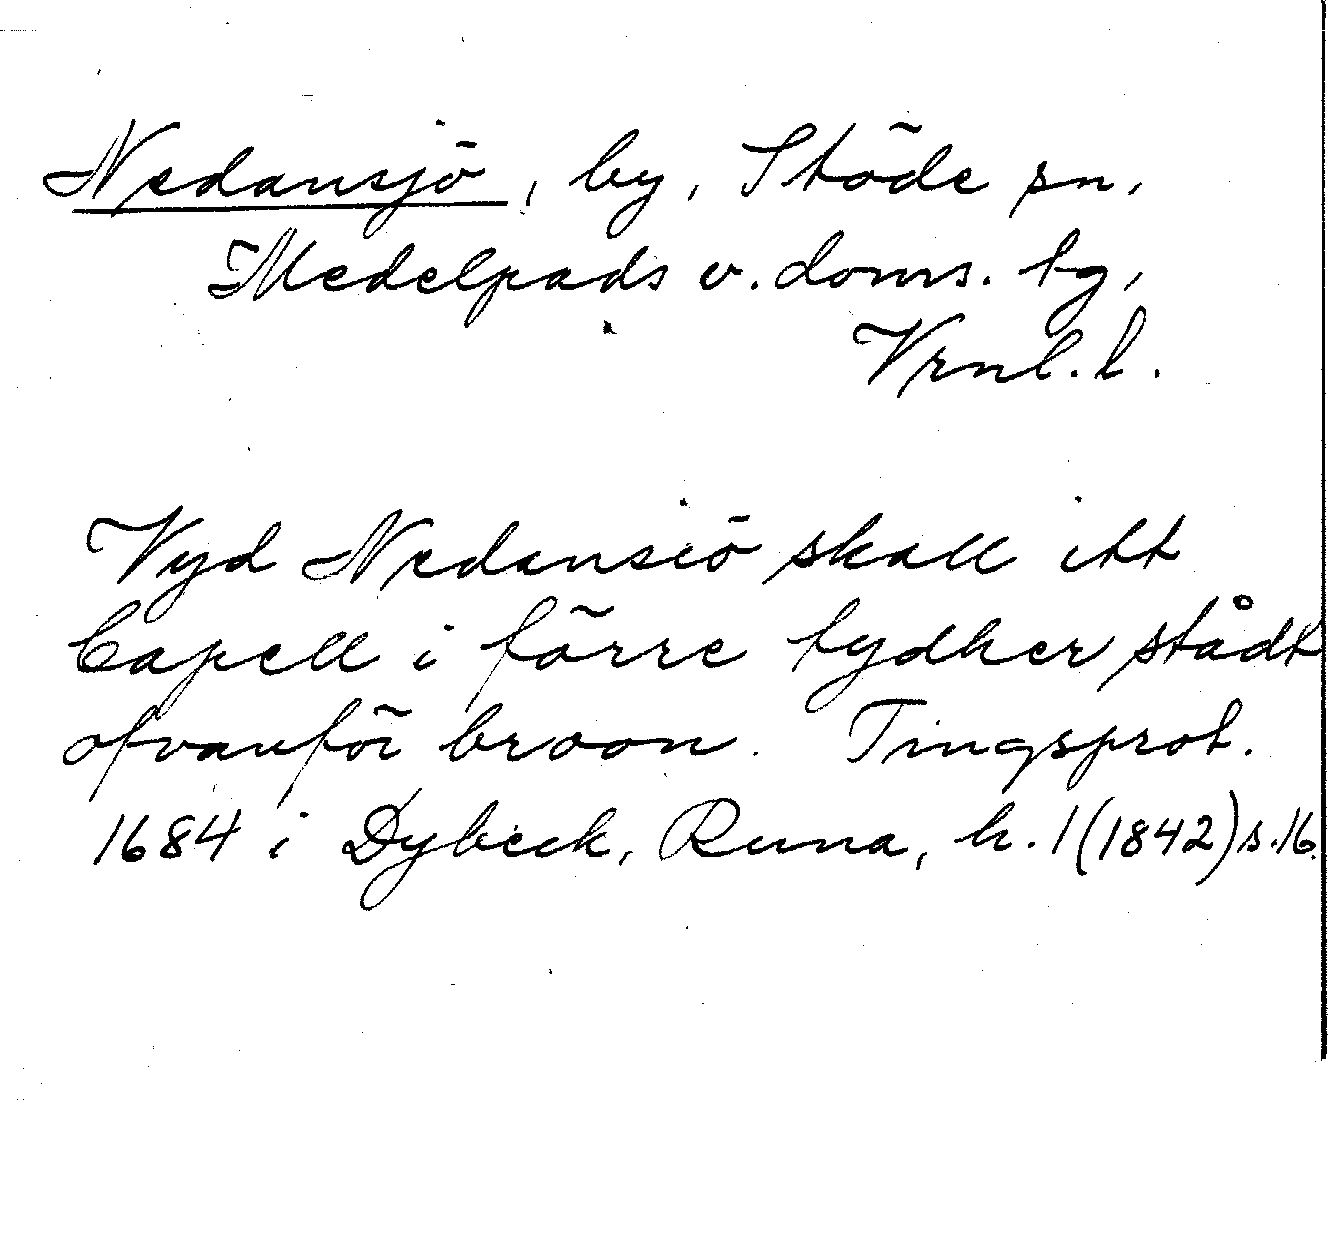 Nedansjö, by, Stöde sn,
Medelpads v. doms. tg,
Vrnl. l.
Vyd Nedansiö skall itt
Capell i förre tydher stådt
ofvanför broon. Tingsprot.
1684 i Dybeck, Runa, h. 1 (1842) s. 16.